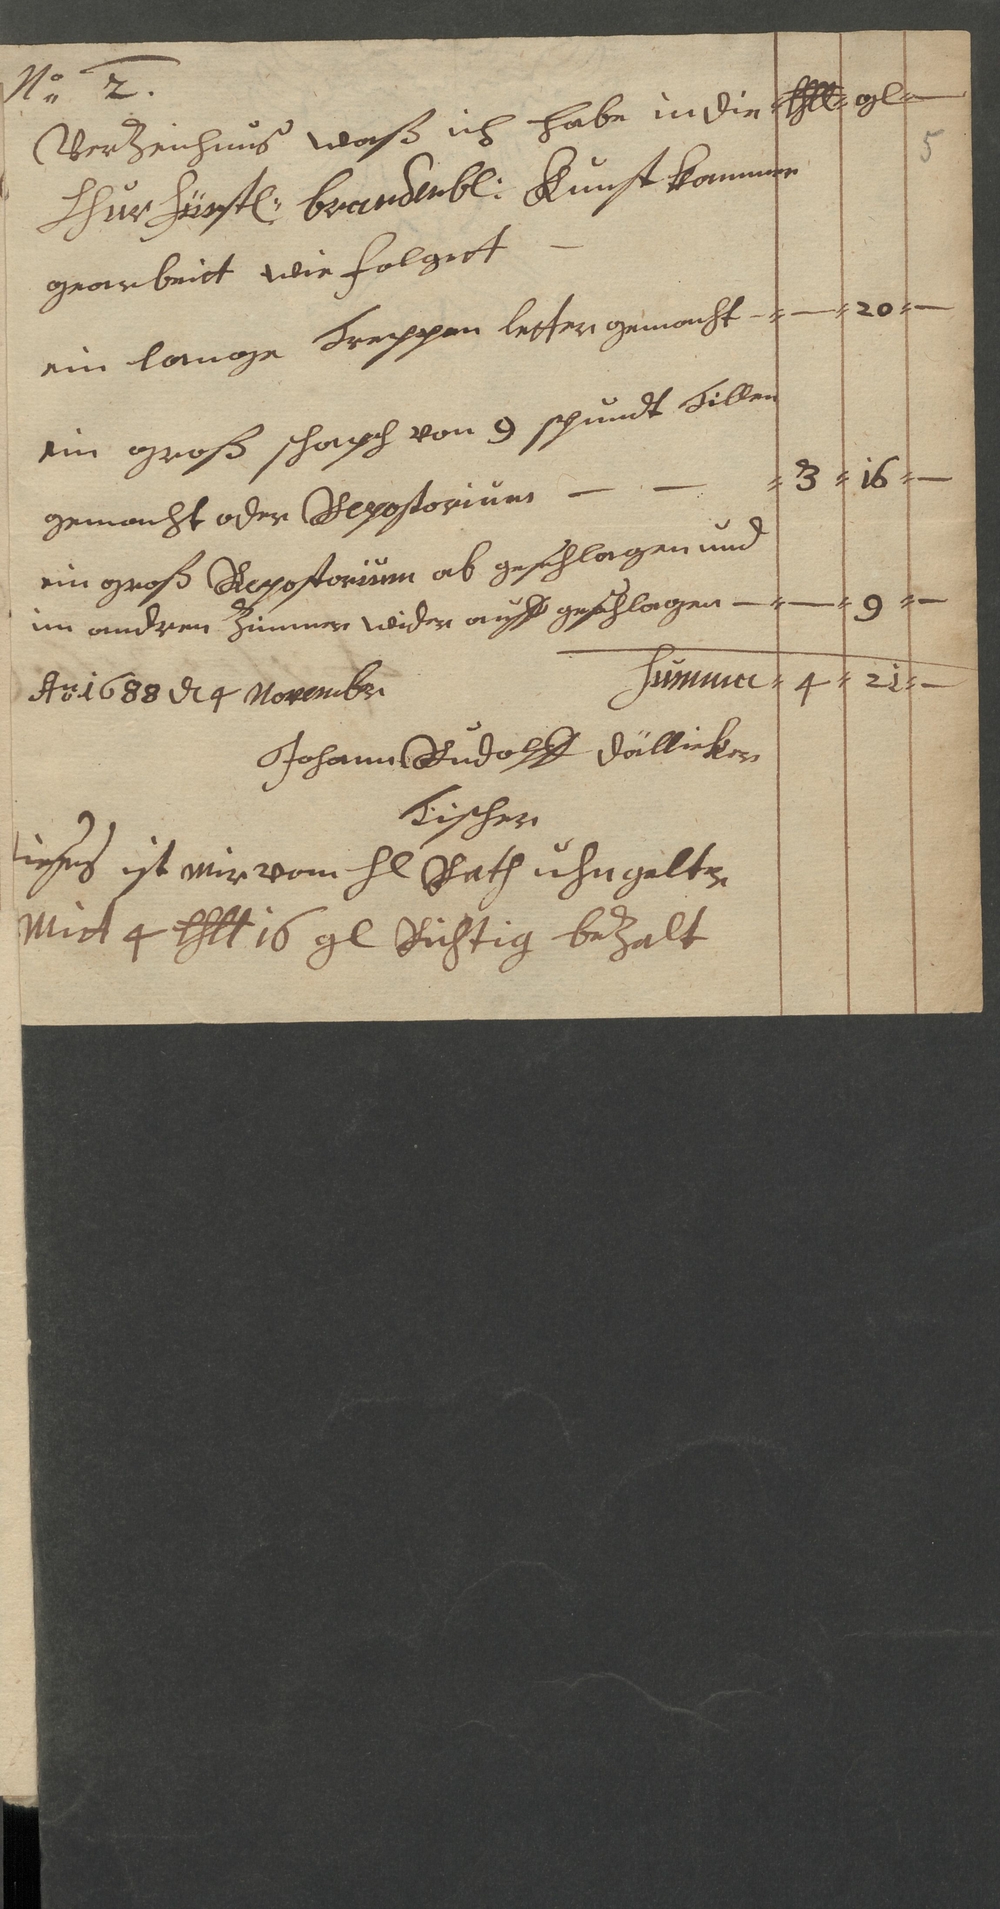 No 2.
VerZeichnus waß ich habe in die thll gl
5
Churfürstl: brandenbl: Kunstkammer
gearbeitt wie folgett
ein lange Treppen letter gemacht — 20 —
ein groß schapf von 9 spundt Dillen
gemacht oder Repostorium — — 3 16 —
ein groß Repostorium ab geschlagen und
im andren Zimmer wider auff geschlagen — — 9 —
Ao 1688 d 4 November Summa 4 21 —
Johann Rudolff Dällicker
Tischer
dieses ist mir vom hl Rath uhngelter
Mit 4 thll 16 gl Richtig beZalt